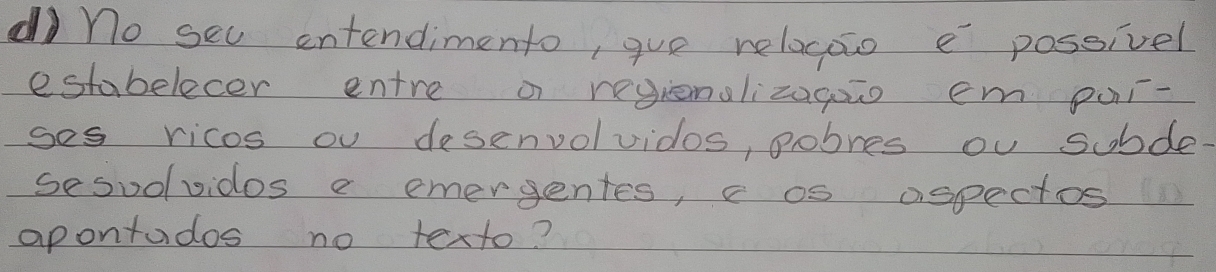 d) No seu entendimento, que relação é possível
estabelecer entre a regionalização em paí-
ses ricos ou desenvolvidos, pobres ou subde-
sesvolvidos e emergentes, e os aspectos
apontados no texto?